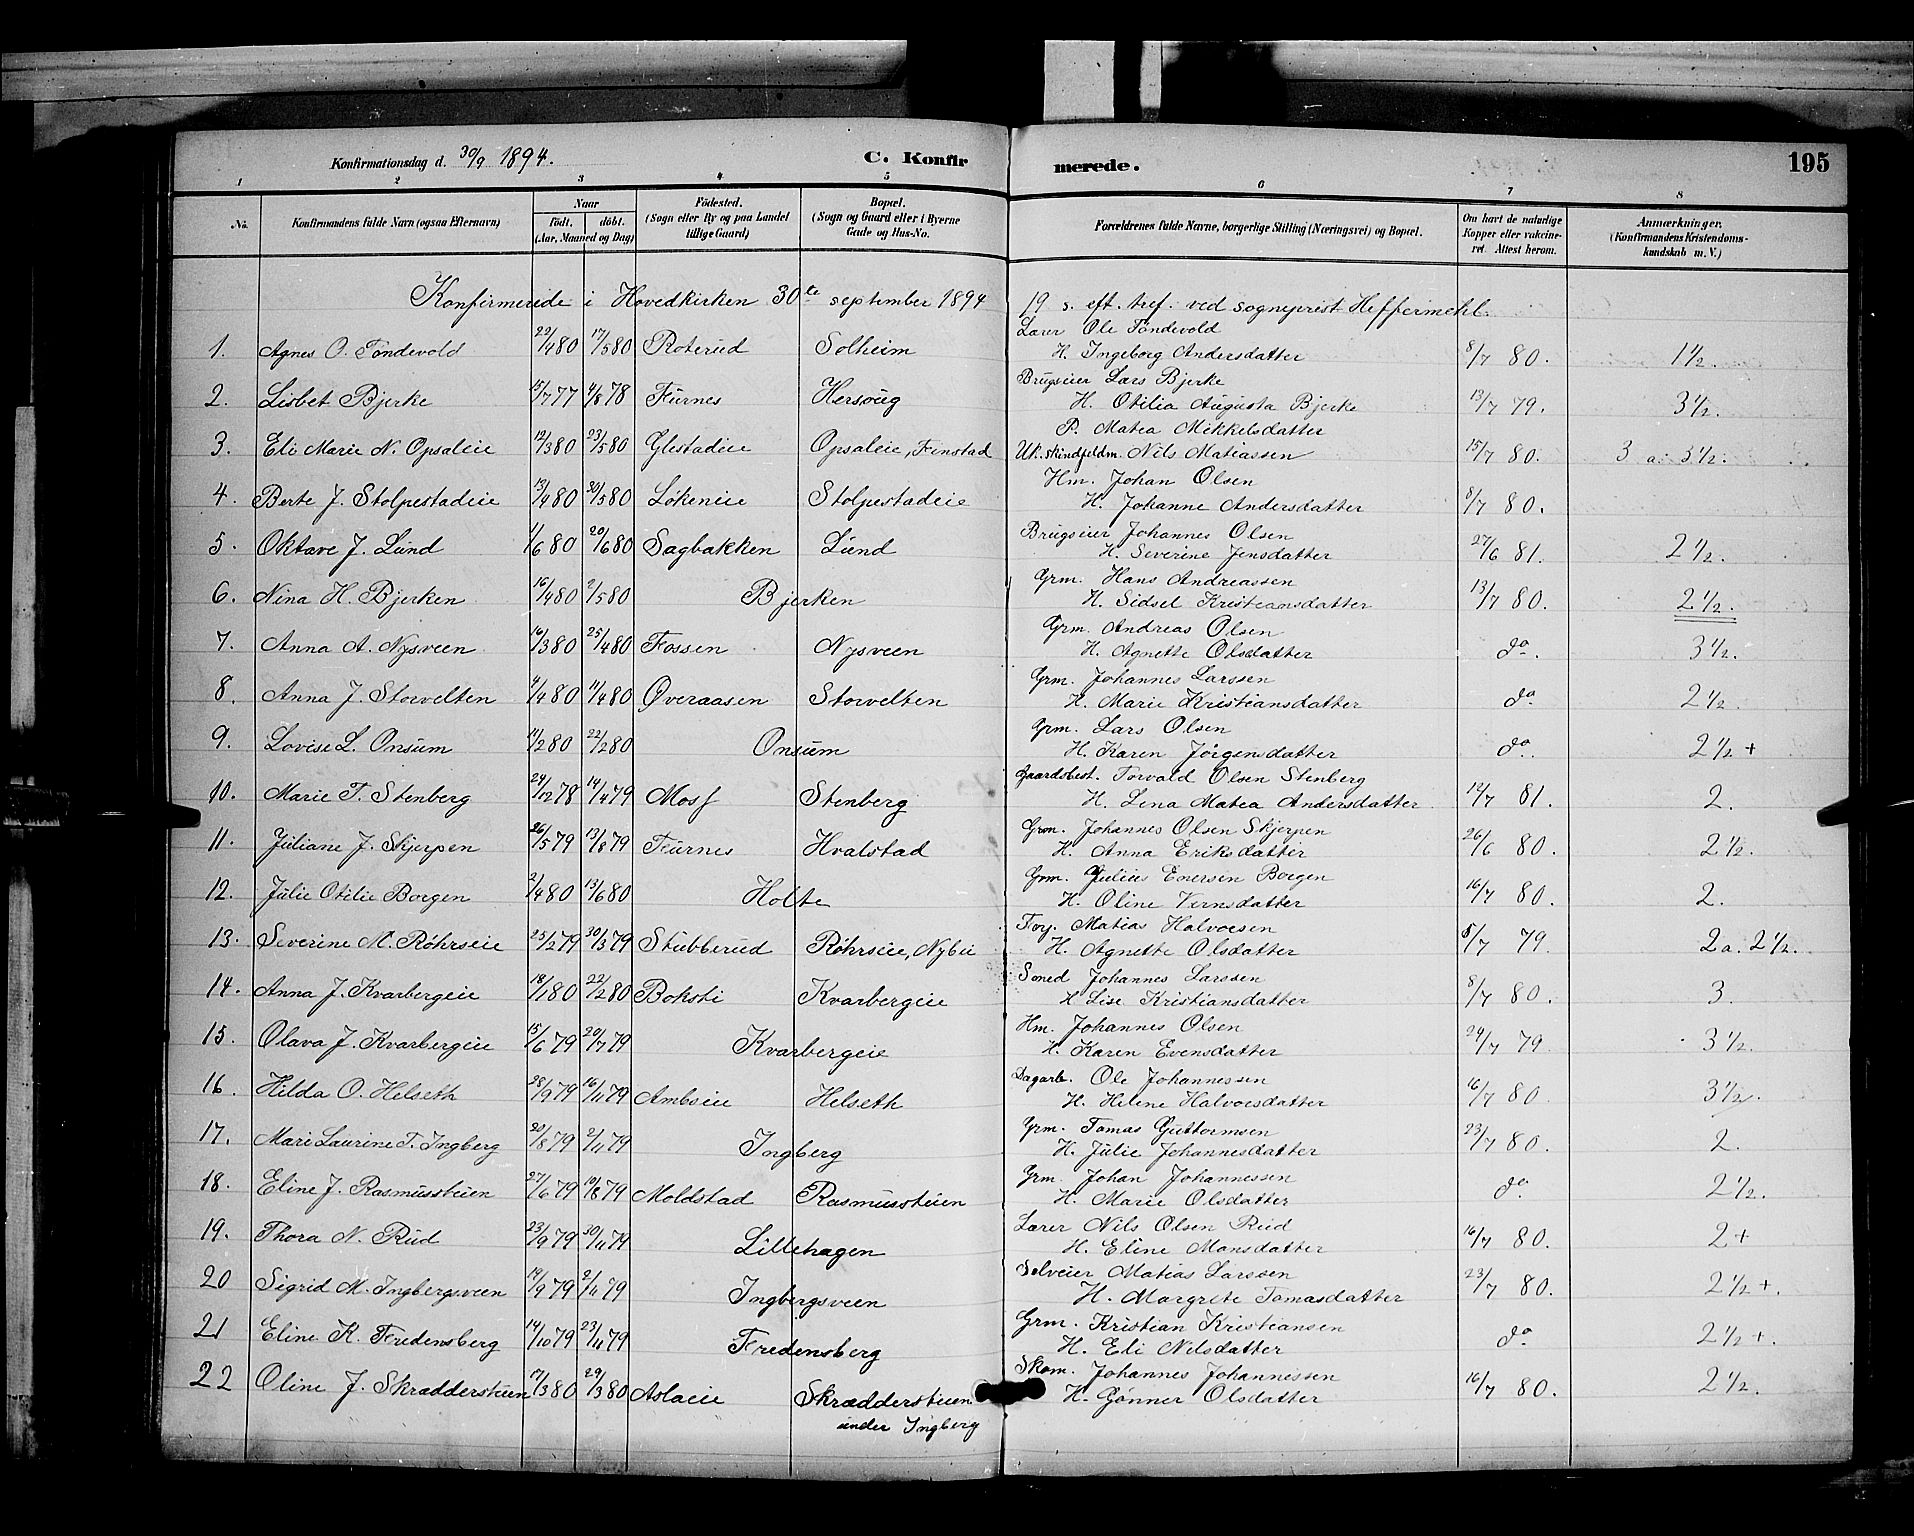 Konfirmationsdag d. 30/9 1894. C. Konfirmerede. 195
1 2 3 4 5 6 7 8
No. Konfirmandens fulde Navn (ogsaa Efternavn) Naar födt. döbt. (Aar, Maaned og Dag) Födested. (Sogn eller By og paa Landet tillige Gaard) Bopæl. (Sogn og Gaard eller i Byerne Gade og Hus-No. Forældrenes fulde Navne, borgerlige Stilling (Næringsvei) og Bopæl. Om havt de naturlige Kopper eller vakcineret. Attest herom. Anmærkninger. (Konfirmandens Kristendomskundskab m. V.)
Konfirmerede i Hovedkirken 30te september 1894 19 s. eft. tref. ved sogneprest Heffermehl.
Lærer Ole Töndevold
1. Agnes O. Töndevold 22/4 80 17/5 80 Roterud Solheim H. Ingeborg Andersdatter 8/7 80. 1½.
Brugseier Lars Bjerke
2. Lisbet Bjerke 15/7 77 4/8 78 Furnes Hersoug H. Otilia Augusta Bjerke 13/7 79. 3½.
P. Matea Mikkelsdatter
3. Eli Marie N. Opsaleie 12/3 80 23/5 80 Glestadeie Opsaleie, Finstad Uk. skindfeldm. Nils Matiassen 15/7 80. 3 a. 3½.
Hm. Johan Olsen
4. Berte J. Stolpestadeie 13/4 80 30/5 80 Lökeneie Stolpestadeie H. Johanne Andersdatter 8/7 80.
Brugseier Johannes Olsen
5. Oktave J. Lund 1/6 80 20/6 80 Sagbakken Lund H. Severine Jensdatter 27/6 81. 2½.
Grm. Hans Andreassen
6. Nina H. Bjerken 16/4 80 2/5 80 Bjerken H. Sidsel Kristiansdatter 13/7 80. 2½.
Grm. Andreas Olsen
7. Anna A. Nysveen 16/3 80 25/4 80 Fossen Nysveen H. Agnette Olsdatter do. 3½.
Grm. Johannes Larssen
8. Anna J. Storvelten 4/4 80 11/4 80 Överaasen Storvelten H. Marie Kristiansdatter do. 2½.
Grm. Lars Olsen
9. Lovise L. Onsum 14/2 80 22/2 80 Onsum H. Karen Jörgensdatter do. 2½ +
Gaardsbest. Torvald Olsen Stenberg
10. Marie T. Stenberg 24/12 78 14/4 79 Moss Stenberg H. Lina Matea Andersdatter 12/7 81. 2.
Grm. Johannes Olsen Skjerpen
11. Juliane J. Skjerpen 26/5 79 13/8 79 Furnes Hvalstad H. Anna Eriksdatter 26/6 80. 2½.
Grm. Julius Enersen Borgen
12. Julie Otilie Borgen 2/4 80 13/6 80 Holte H. Oline Virnsdatter 16/7 80. 2.
Fog. Matias Halvorsen
13. Severine M. Röhrseie 25/2 79 30/3 79 Stubberud Röhrseie, Nybu H. Agnette Olsdatter 5/7 79. 2 a. 2½.
Smed Johannes Larssen
14. Anna J. Kvarbergeie 18/1 80 22/2 80 Boksti Kvarbergeie H. Lise Kristiansdatter 8/7 80. 3.
Hm. Johannes Olsen
15. Olava J. Kvarbergeie 15/6 79 20/7 79 Kvarbergeie H. Karen Evensdatter 24/7 79. 3½.
Dagarb. Ole Johannessen
16. Hilda O. Helseth 28/9 79 16/11 79 Ambseie Helseth H. Helene Halvorsdatter 16/7 80. 3½.
Grm. Tomas Guttormsen
17. Mari Laurine T. Ingberg 20/8 79 2/11 79 Ingberg H. Julie Johannesdatter 23/7 80. 2.
Grm. Johan Johannessen
18. Eline J. Rasmusstuen 27/6 79 10/8 79 Moldstad Rasmusstuen H. Marie Olsdatter do. 2½.
Lærer Nils Olsen Rud
19. Thora N. Rud 23/9 79 30/11 79 Lillehagen H. Eline Monsdatter 16/7 80. 2 +
Selveier Matias Larssen
20 Sigrid M. Ingbergsveen 19/9 79 2/11 79 Ingbergsveen H. Margrete Tomasdatter 23/7 80. 2½ +.
Grm. Kristian Kristiansen
21 Eline K. Fredensberg 14/10 79 23/11 79 Fredensberg H. Eli Nilsdatter do. 2½ +.
Skom. Johannes Johannessen
22 Oline J. Skrædderstuen 17/3 80 29/3 80 Aslaeie Skrædderstuen H. Gönner Olsdatter 16/7 80. 2½.
under Ingberg